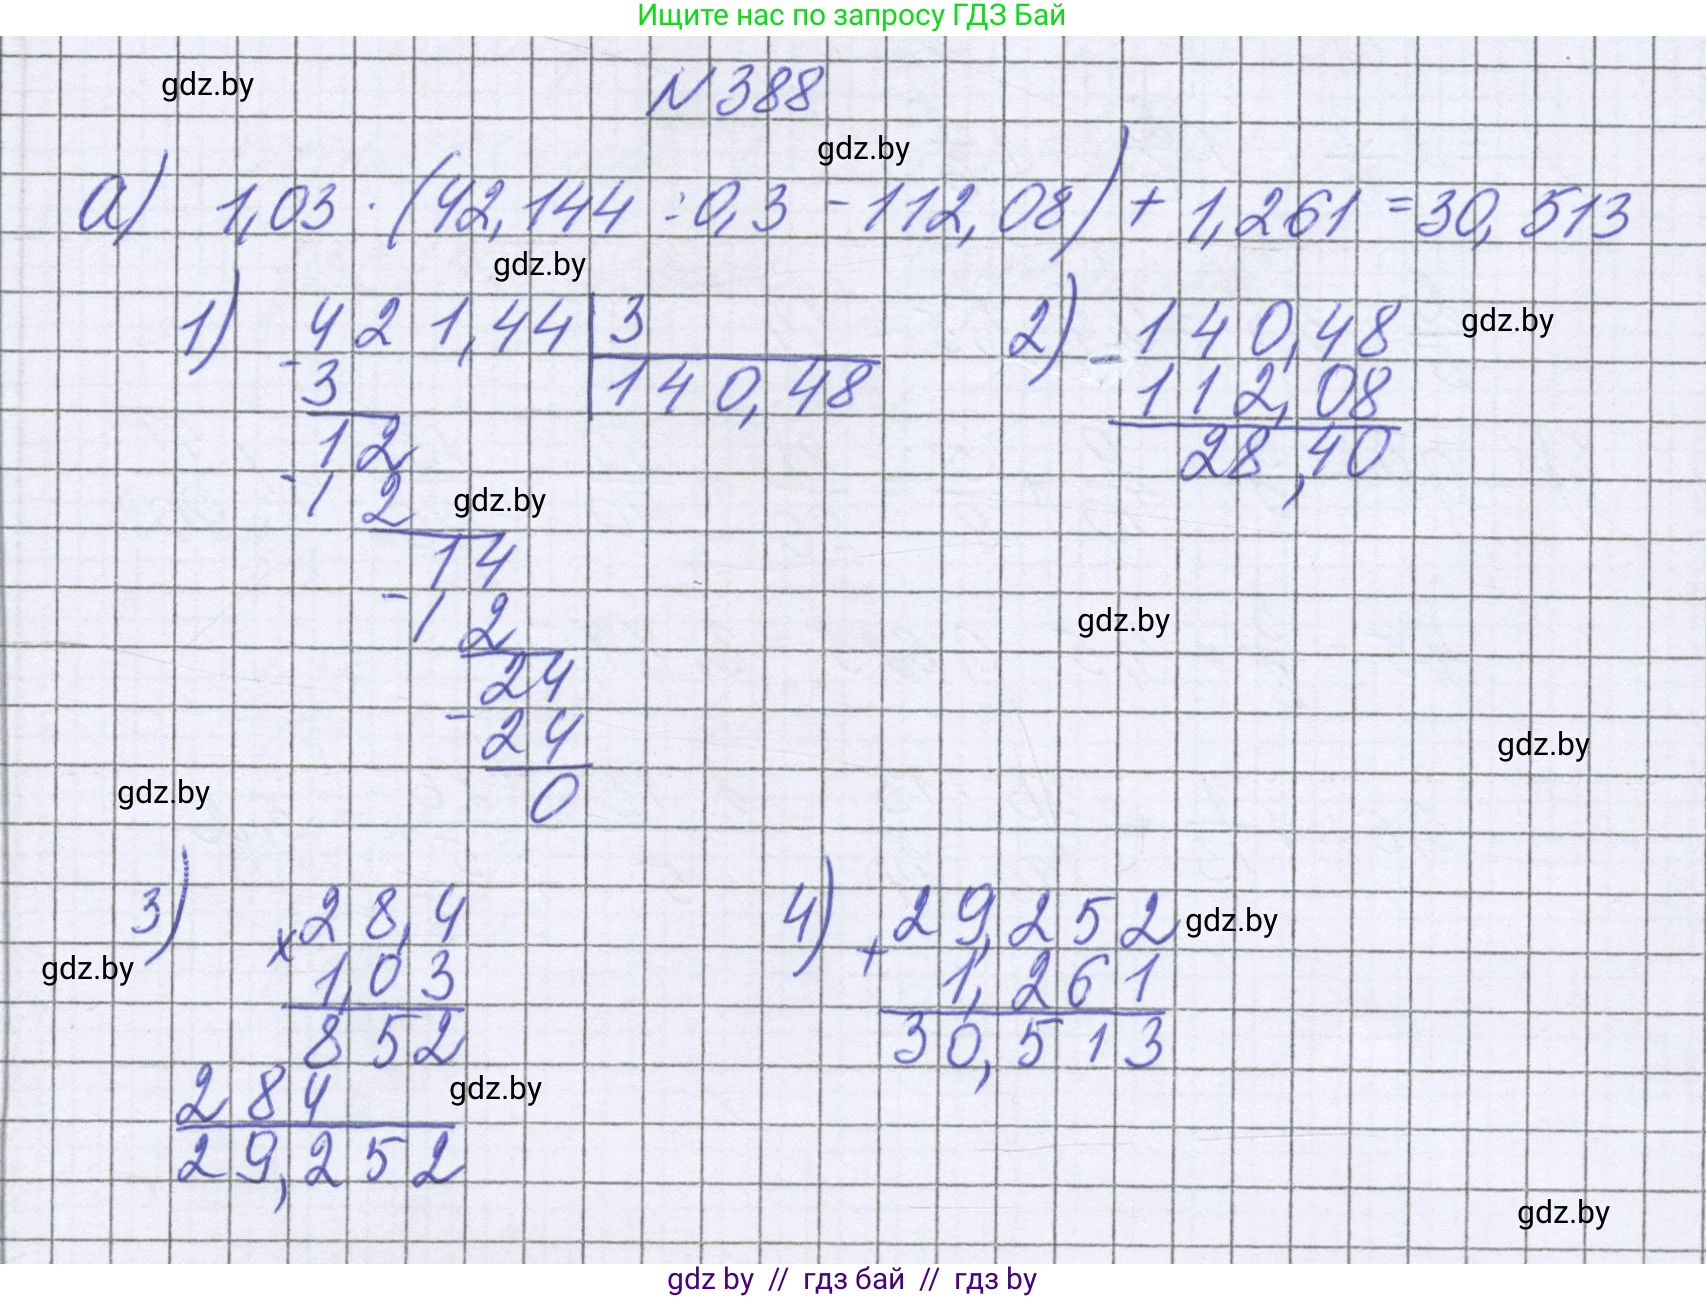 Ищите нас по запросу ГДЗ Бай
gdz.by
N 388
gdz.by
а) 1,03 · (42,144 : 0,3 - 112,08) + 1,261 = 30,513
gdz.by
1) 421,44 | 3
2) - 140,48
gdz.by
- 3
140,48
112,08
12
28,40
- 12
gdz.by
14
- 12
gdz.by
24
- 24
gdz.by
gdz.by
0
3) x 28,4
4) + 29,252
gdz.by
gdz.by
1,03
1,261
852
30,513
284
gdz.by
29,252
gdz.by
gdz by // гдз бай // гдз by